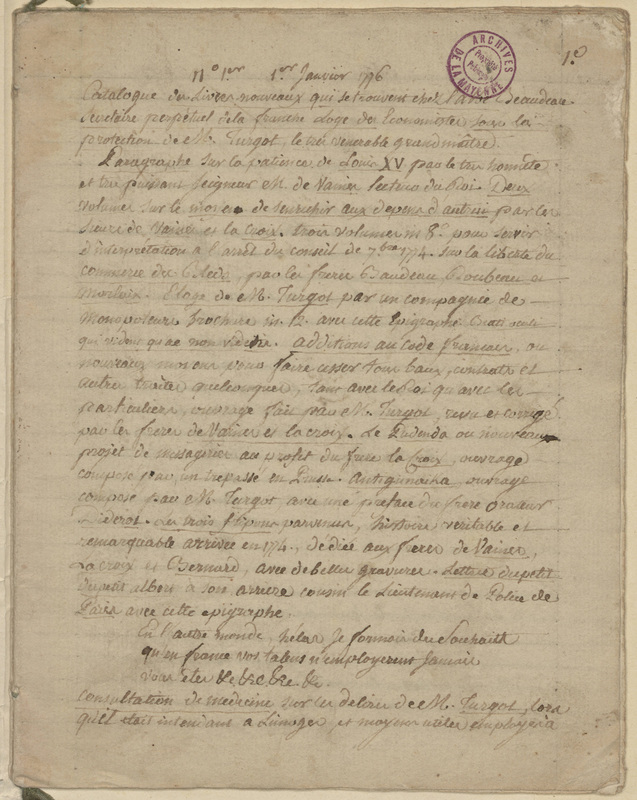 ARCHIVES
DE LA MAYENNE
1e
No 1er 1er Janvier 1776
Catalogue des Livres nouveaux qui se trouvent chez l'abbé Beaudeau
Secretaire perpetuel de la franche Loge des Economistes sous la
protection de M. Turgot, le tres venerable grand maître.
Paragraphe sur la patience de Louis XV par le tres honnête
et tres puissant seigneur M. de Vaines lecteur du Roi. Deux
volumes sur le moyen de s'enrichir aux depens d'autrui par les
sieurs de Vaines et la Croix. trois volumes in 8o. pour servir
d'interprétation a l'arrêt du conseil de 7bre 1774. sur la liberté du
commerce des Bleds, par les freres Baudeau Roubeau et
Eloge de M. Turgot par un compagnie de
Monopoleurs brochure in. 12. avec cette Epigraphe
additions au Code francais, ou
nouveaux moyens pour faire casser tous baux, contrats et
autres traités quelconques, tant avec le Roi qu'avec les
particuliers, ouvrage fait par M. Turgot, revu et corrigé
par les freres de Vaines et la croix. Le Pudenda ou nouveau
projet de messageries au profit du frere la Croix, ouvrage
composé par un trepassé en Prusse. Antiquinaira, ouvrage
composé par M. Turgot avec une preface du frere orateur
Diderot. Les trois fripons parvenus, histoire veritable et
remarquable arrivée en 1774, dediée aux freres de Vaines,
La croix et Bernard, avec de belles gravures. Lettre du petit
du petit albert a son arriere cousin le Lieutenant de Police de
Paris avec cette epigraphe.
En l'autre monde, helas je formois des Souhaits
qu'en france vos talens n'employerent Jamais
vous etes &c &c &c &c
consultation de medecine sur les delires de M. Turgot, lors
qu'il etait intendant a Limoges, et moyens utiles employés a